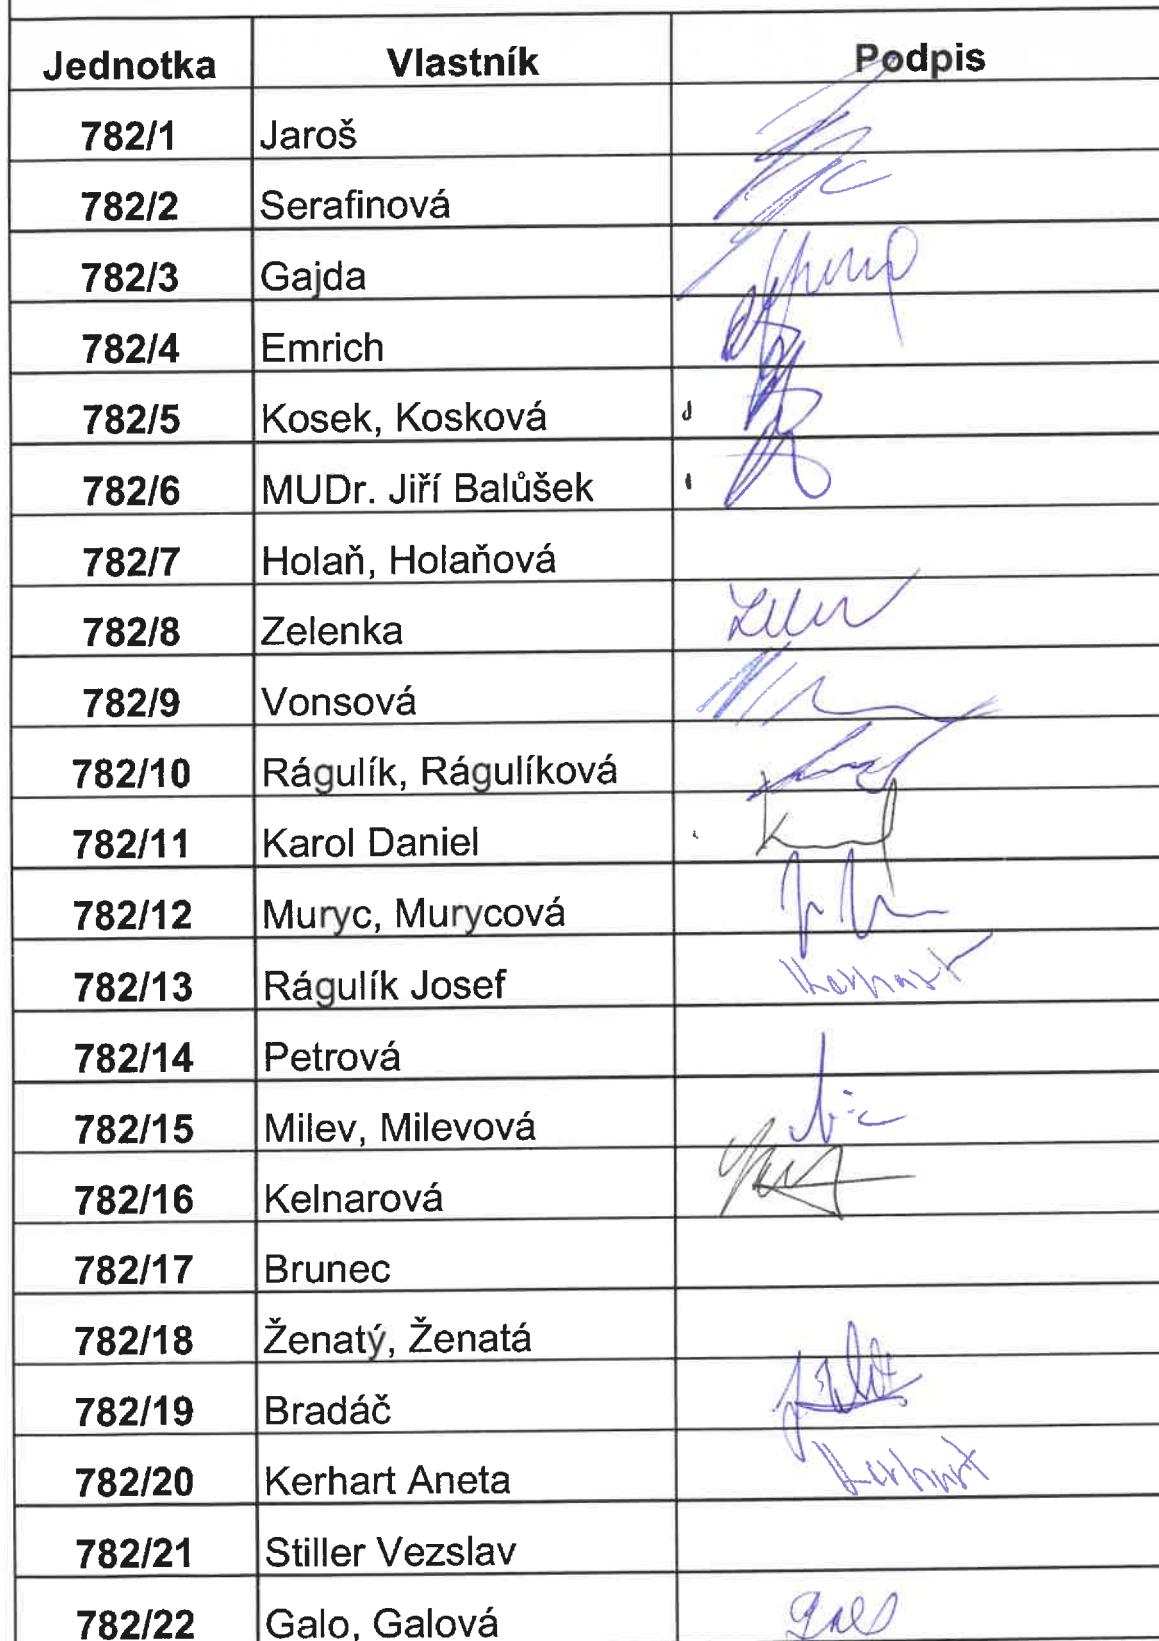 Jednotka Vlastník Podpis
782/1 Jaroš
782/2 Serafinová
782/3 Gajda
782/4 Emrich
782/5 Kosek, Kosková
782/6 MUDr. Jiří Balůšek
782/7 Holaň, Holaňová
782/8 Zelenka
782/9 Vonsová
782/10 Rágulík, Rágulíková
782/11 Karol Daniel
782/12 Muryc, Murycová
782/13 Rágulík Josef Kerhart
782/14 Petrová
782/15 Milev, Milevová
782/16 Kelnarová
782/17 Brunec
782/18 Ženatý, Ženatá
782/19 Bradáč
782/20 Kerhart Aneta Kerhart
782/21 Stiller Vezslav
782/22 Galo, Galová